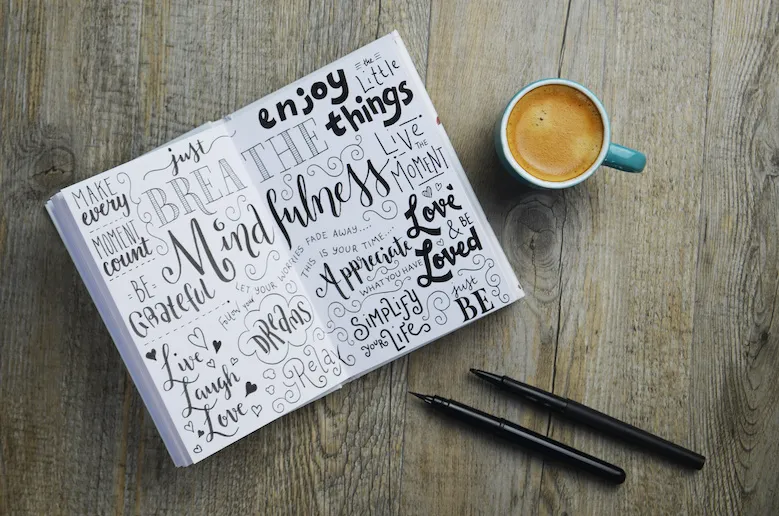 MAKE
every
MOMENT
count
-BE-
Grateful
just
BREATHE
Mindfulness
LET YOUR WORRIES FADE AWAY....
THIS IS YOUR TIME...
follow your
DREAMS
Live
Laugh
Love
Relax
enjoy
the
Little
things
LIVE
THE
MOMENT
Appreciate
WHAT YOU HAVE
Love
& BE
Loved
SIMPLIFY
YOUR Life
just
BE